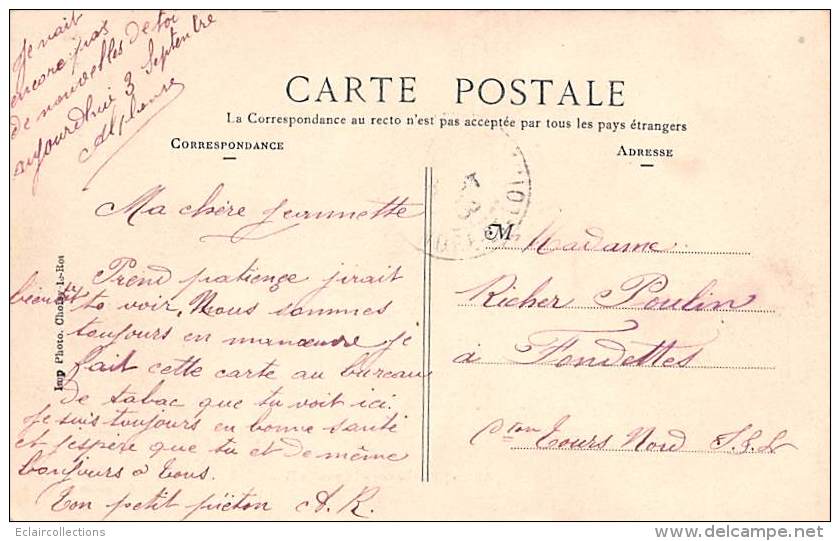 Je nait
encore pas
de nouvelles de toi
aujourdhui 3 Septenbre
Alphonse
CARTE POSTALE
La Correspondance au recto n'est pas acceptée par tous les pays étrangers
CORRESPONDANCE
ADRESSE
Ma chère Jeannette
Prend patience jirait
bientot to voir. Nous sommes
toujours en manœuvre je
fait cette carte au bureau
de tabac que tu voit ici.
Je suis toujours en bonne santé
et j'espère que tu et de même
bonjours a tous.
Ton petit piéton A. R.
M Madame
Richer Poulin
à Fondettes
Cton Tours Nord I.&.L
Imp Photo. Choisy-le-Roi
Eclaircollections
www.delcampe.net